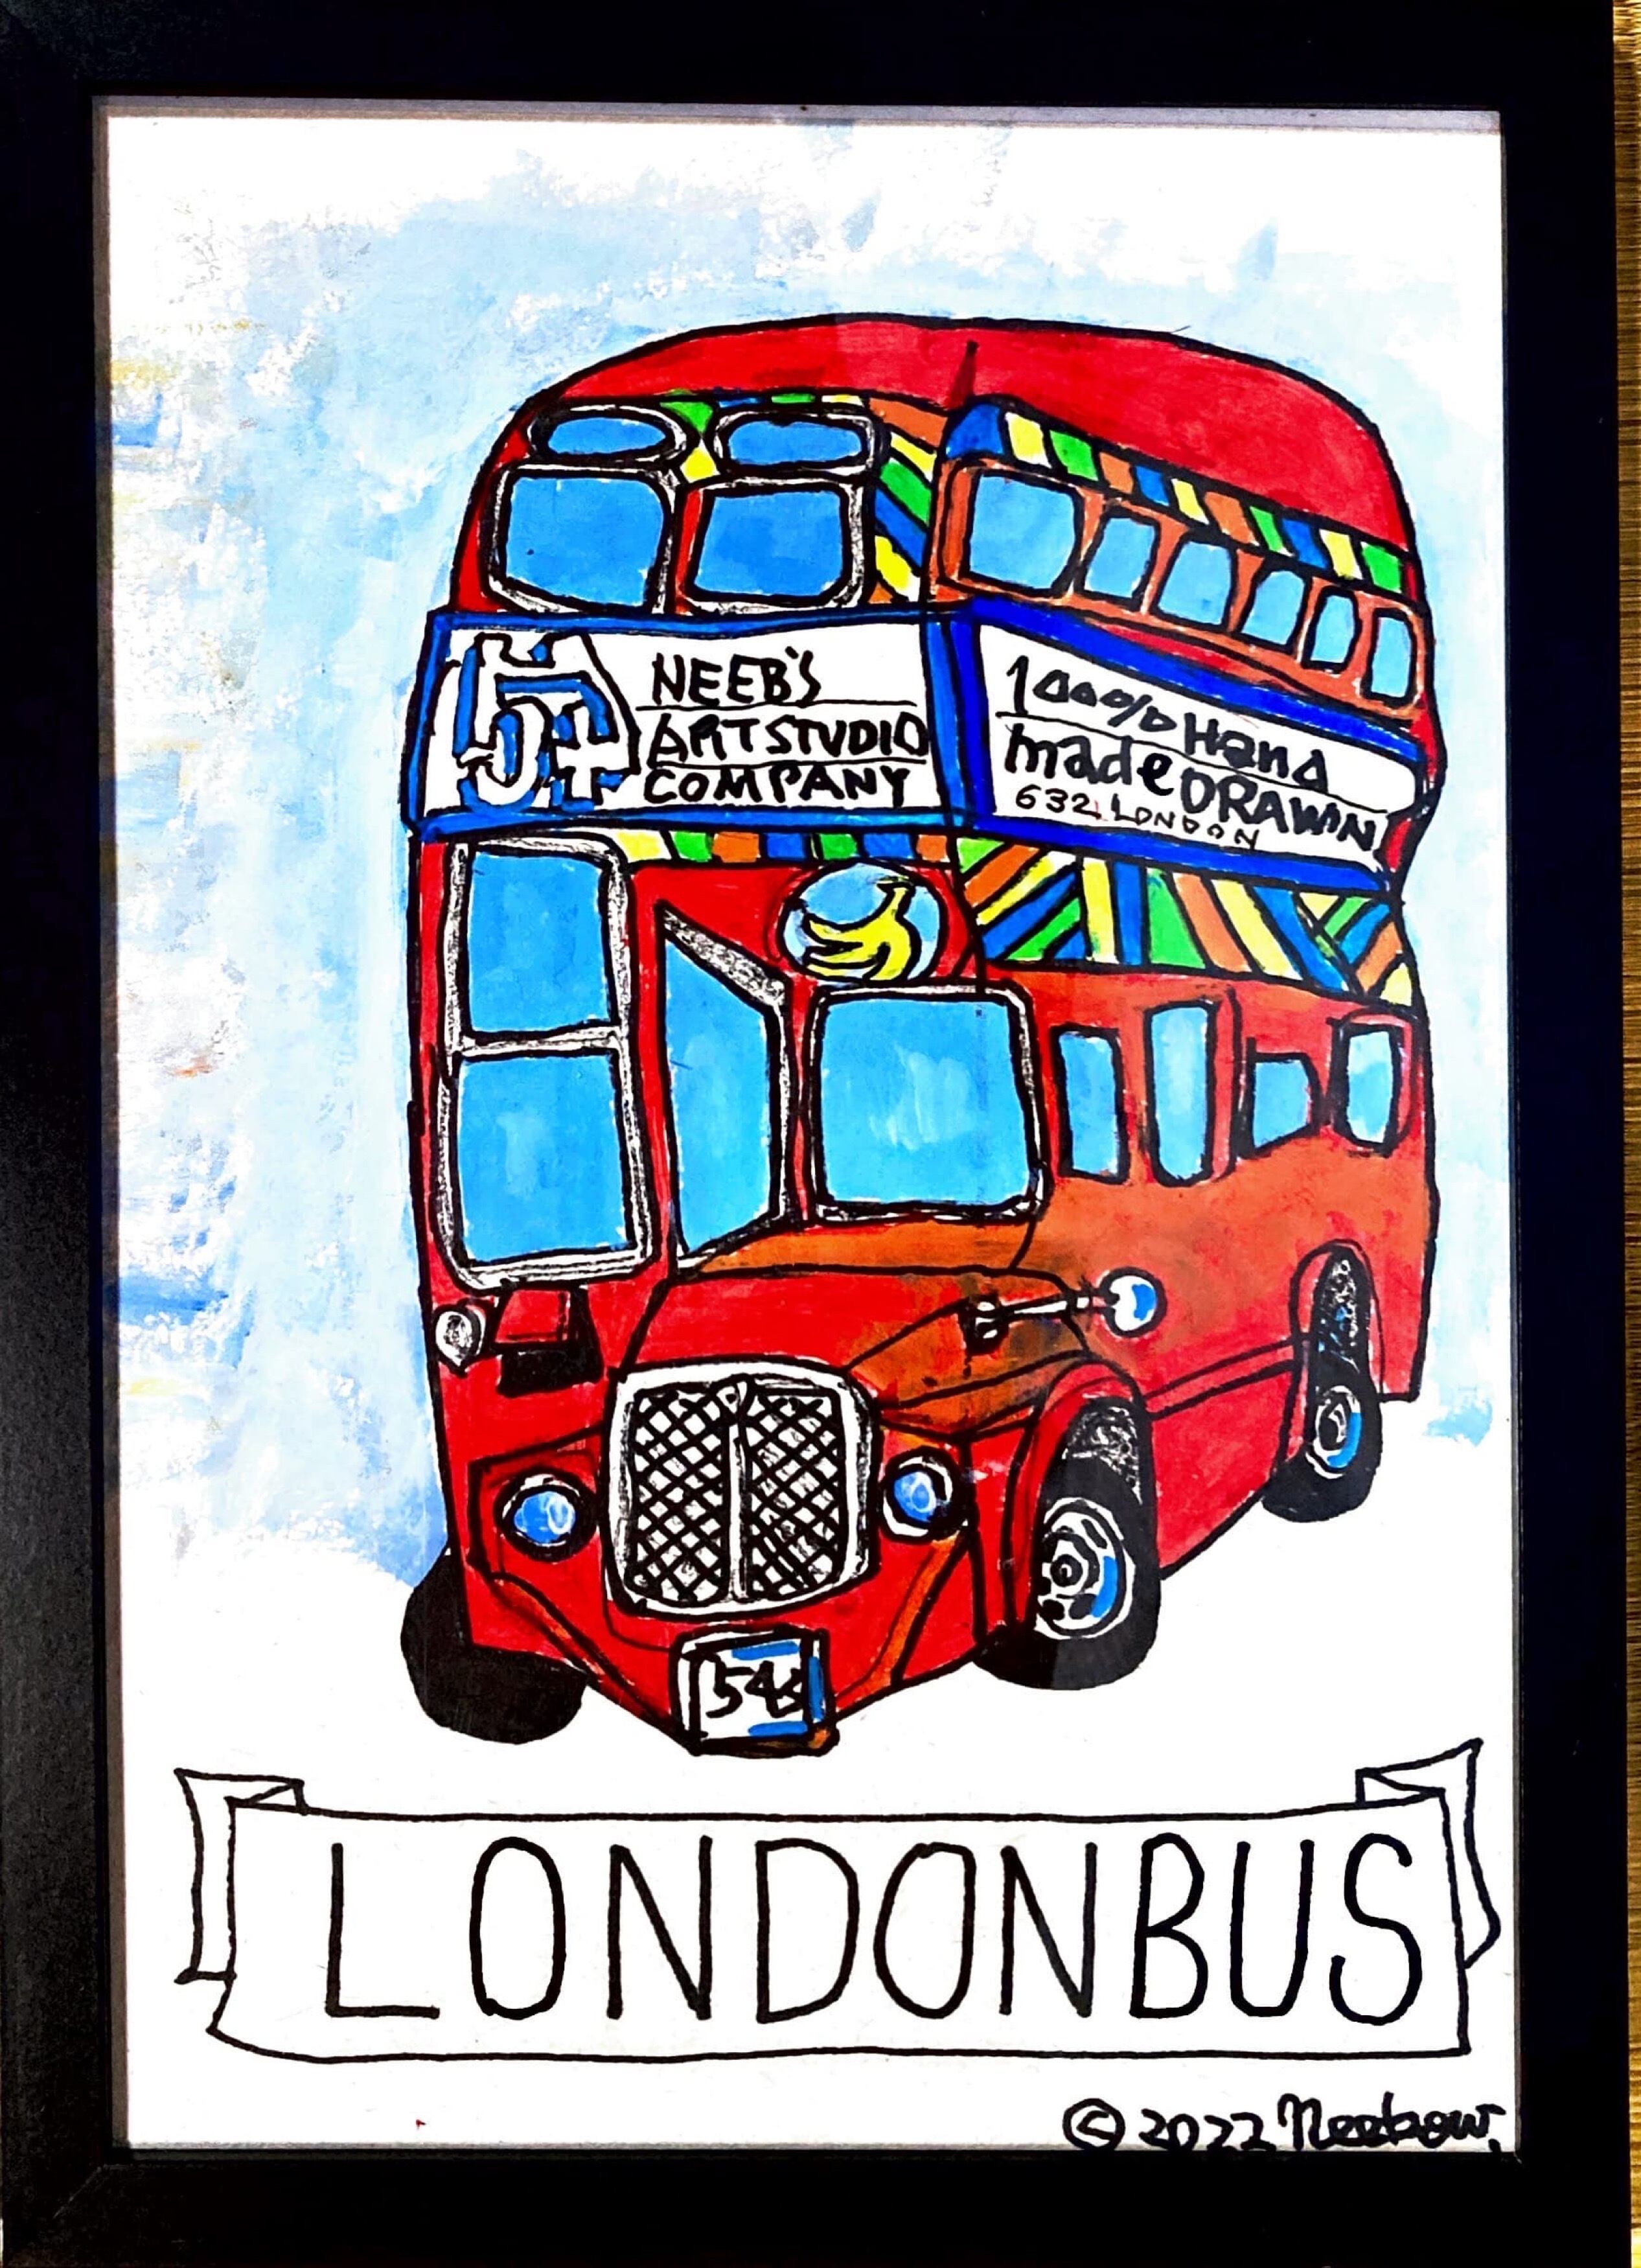 NEEB'S
ARTSTUDIO
COMPANY
100% Hand
made DRAWN
632 LONDON
LONDONBUS
© 2022 Neebow.